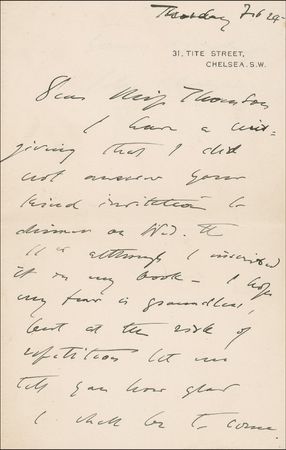 Thursday Feb 24
31, TITE STREET,
CHELSEA. S.W.
Dear Miss Thomson
I have a mis=
giving that I did
not answer your
kind invitation to
dinner on Wed. the
11th although I inscribed
it in my book - I hope
my fear is groundless,
but at the risk of
repetition let me
tell you how glad
I shall be to come